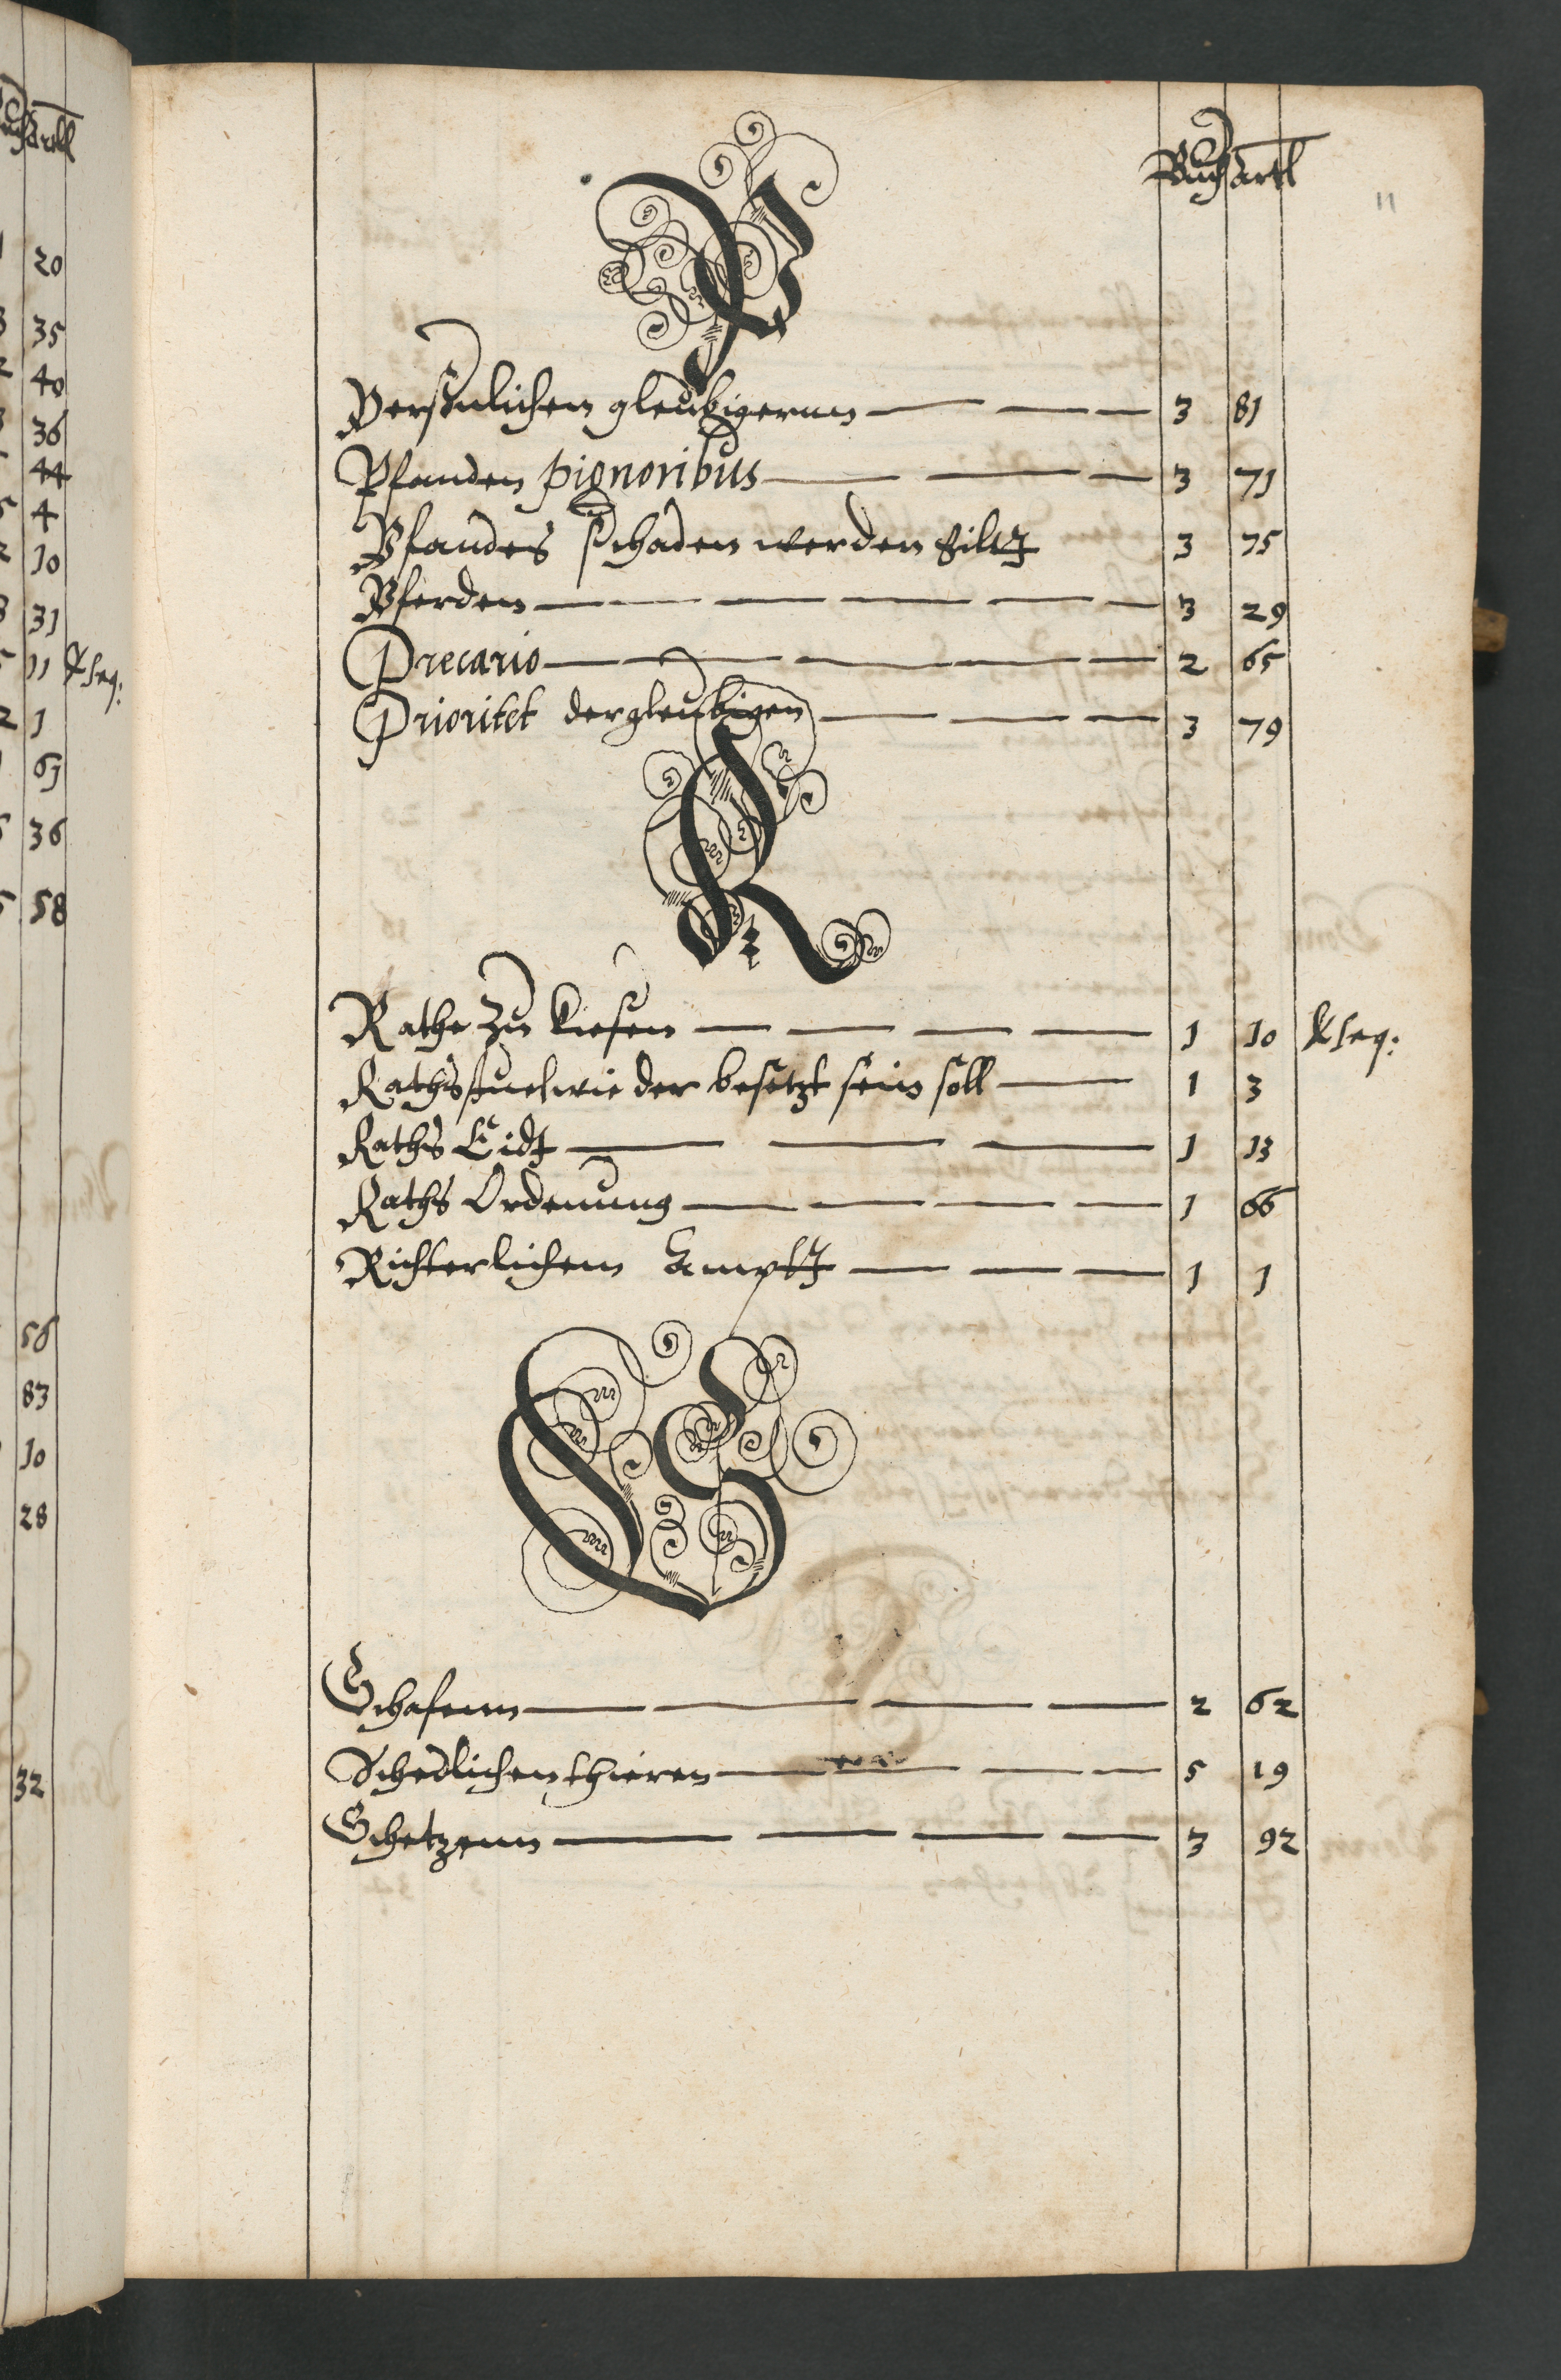 Buch artl
11
P
Personlichen gleubigernn 3 81
Pfanden pignoribus 3 71
Pfandes schaden werden 3 75
Pferden 3 29
Precario 2 65
Prioritet der gleubigen 3 79
R
Rathe zu kiesen 1 10 & seq:
Rathsstuel wie der besetzt sein soll 1 3
Raths Eidt 1 13
Raths Ordenung 1 66
Richterlichem Ampt 1 1
S
Schafenn 2 62
Schedlichen thieren 5 19
Schetzenn 3 92
artl
20
35
40
36
44
4
10
31
11 & seq:
2 1
63
36
58
56
83
10
28
32